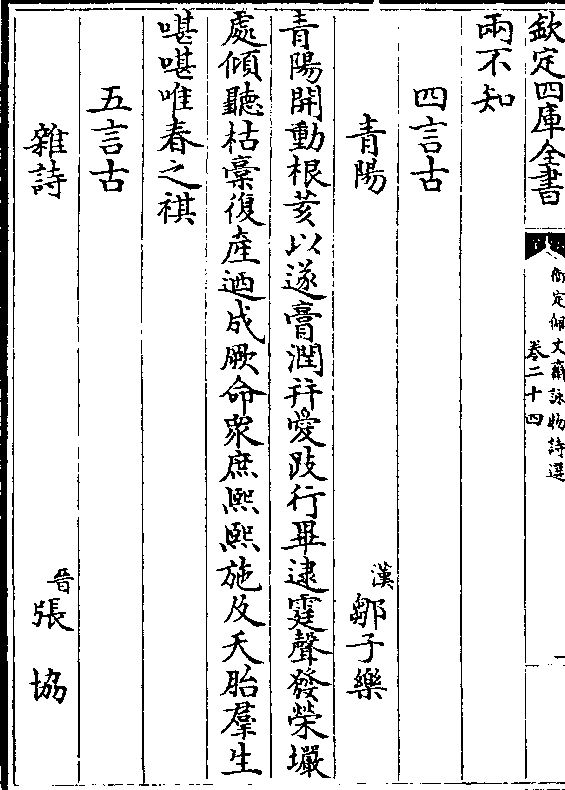 欽定四庫全書
御定佩文齋詠物詩選
卷二十四
一
兩不知
四言古
青陽
漢鄒子樂
青陽開動根荄以遂膏潤并愛跂行畢逮霆聲發榮壧
處傾聽枯槀復產迺成厥命衆庶熙熙施及夭胎羣生
啿啿唯春之祺
五言古
雜詩
晉張協